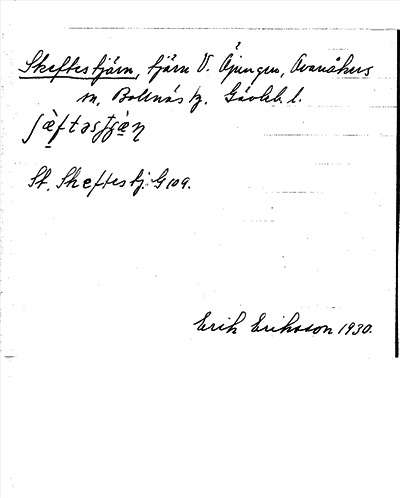 Skeftestjärn, tjärn V. Öjungen, Ovanåkers
sn, Bollnäs tg. Gävleb. l.
St. Skeftestj. G 109.
Erik Eriksson 1930.